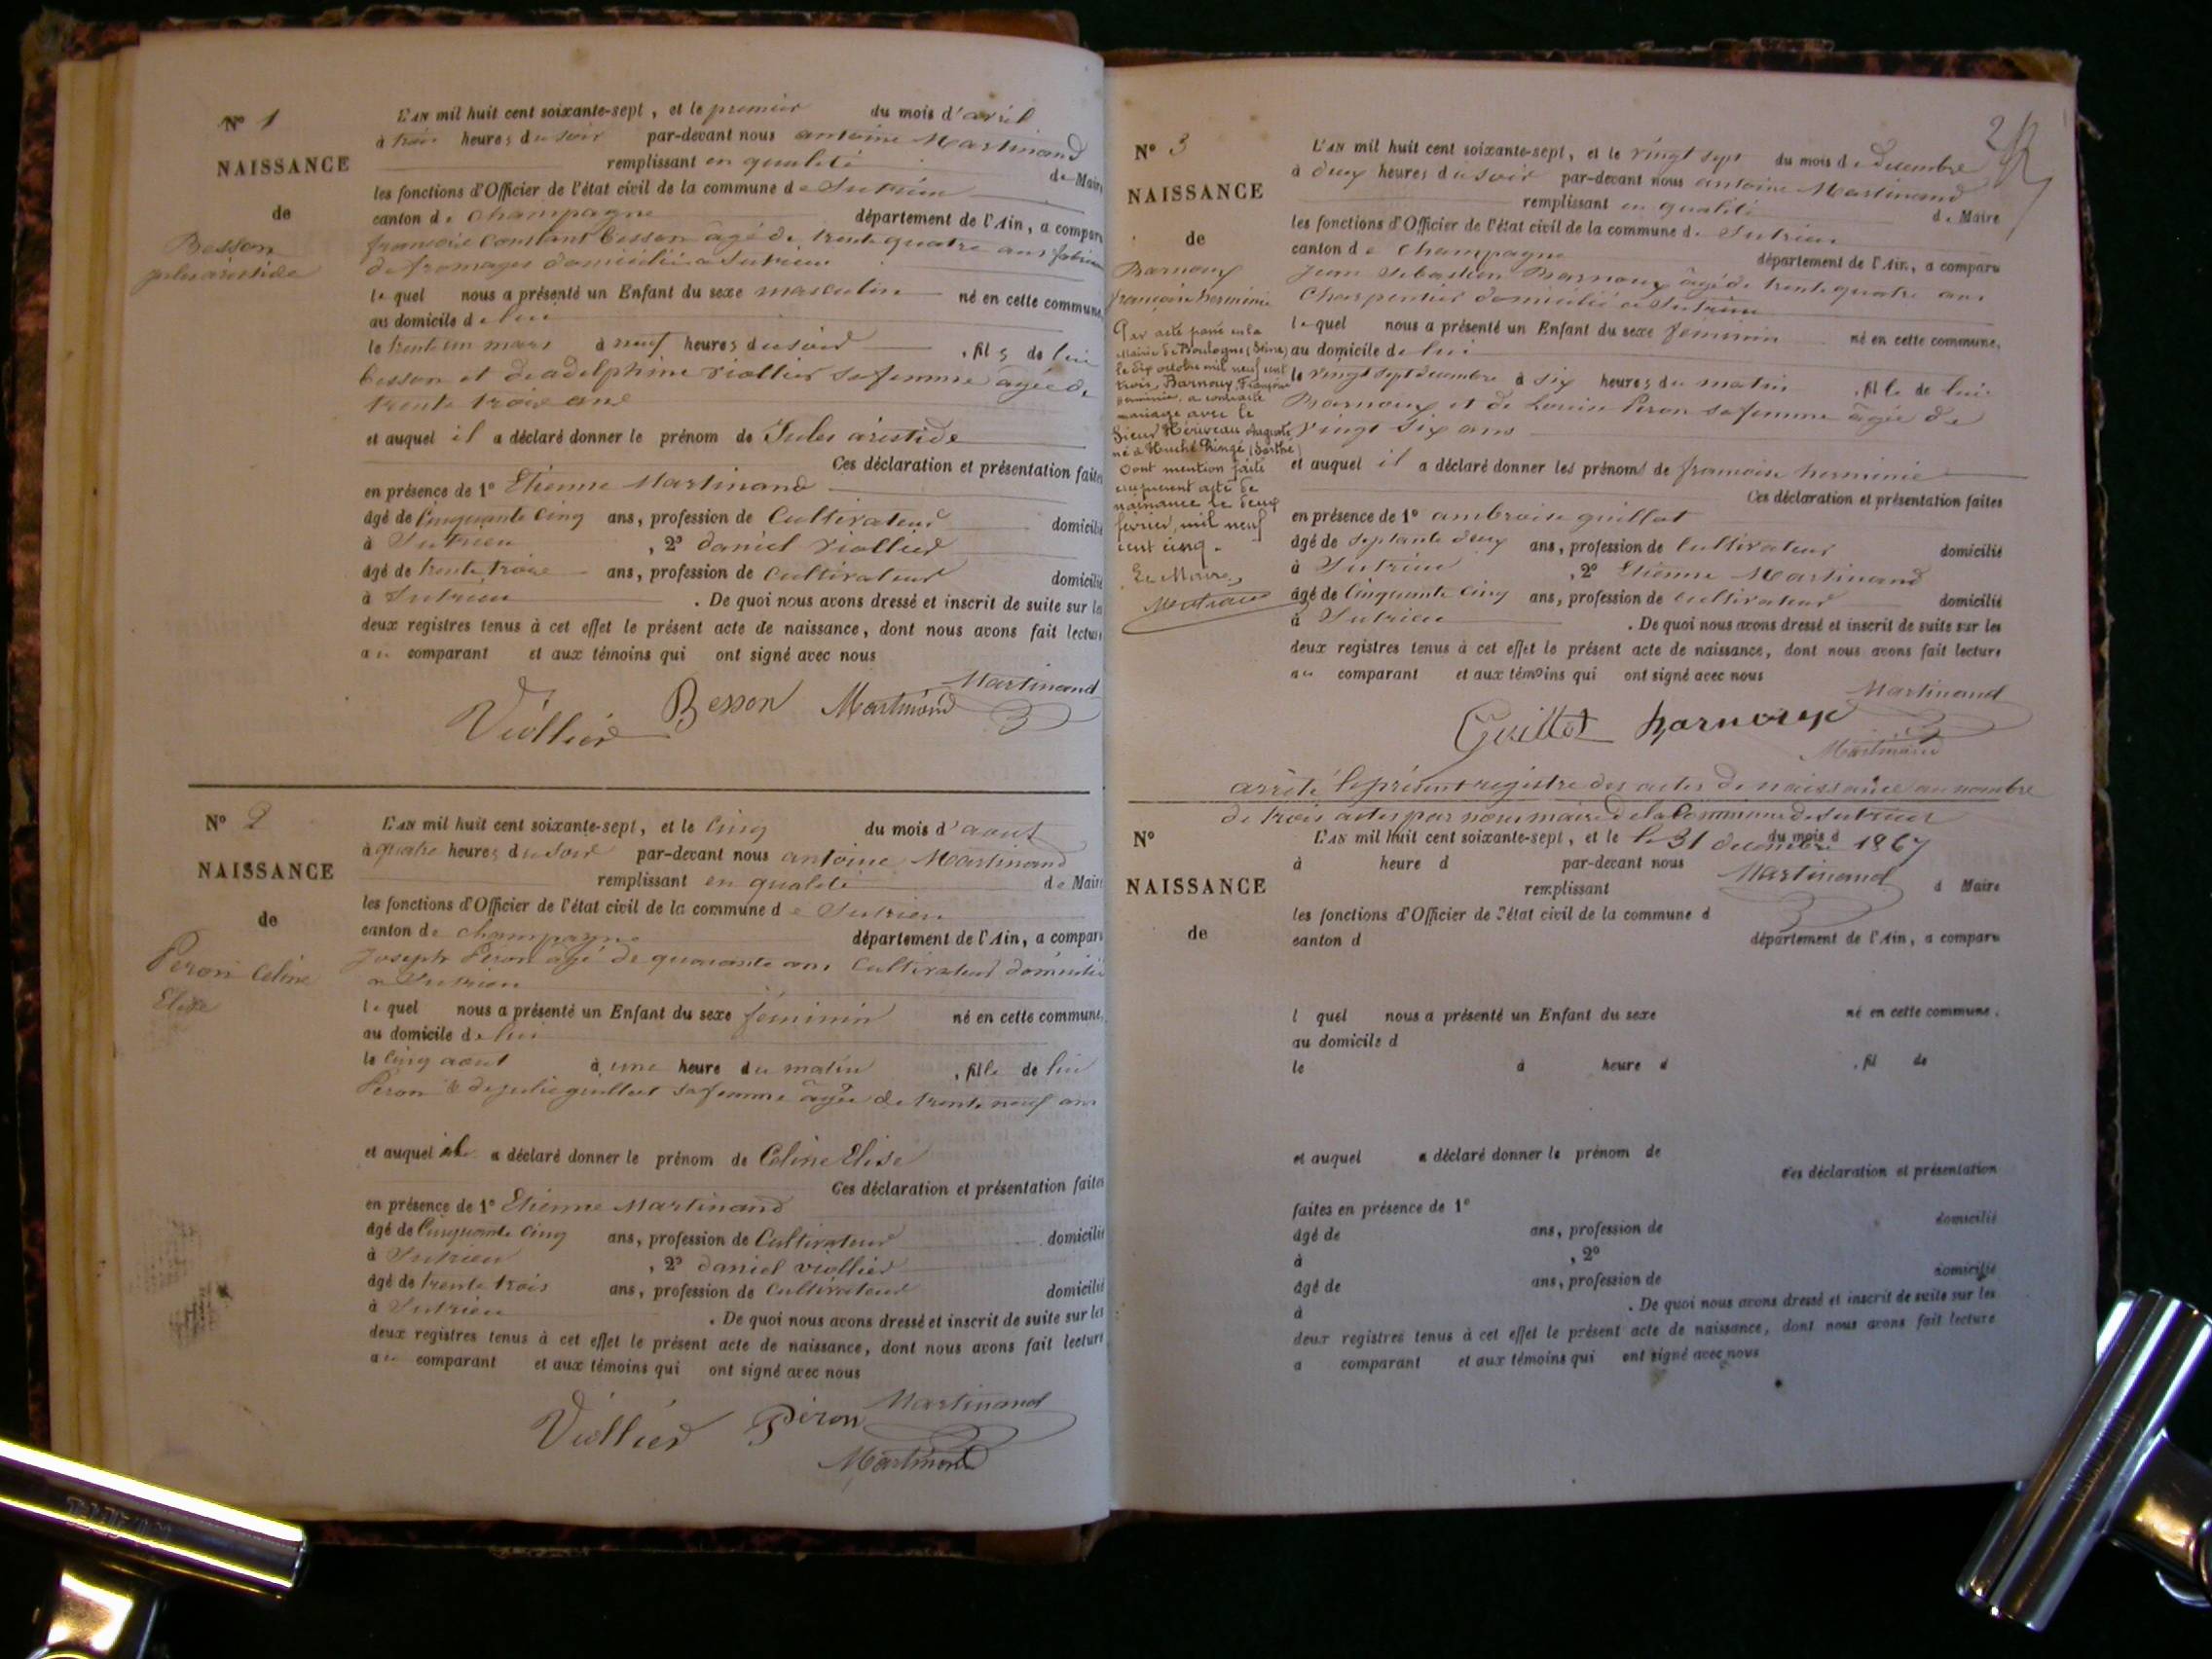 N° 1
NAISSANCE
de
Besson
jules aristide
L'AN mil huit cent soixante-sept, et le premier du mois d'avril
à trois heures du soir par-devant nous antoine Martinand
remplissant en qualité de Maire
les fonctions d'Officier de l'état civil de la commune de Sutrieu
canton de Champagne département de l'Ain, a comparu
françois Constant besson âgé de trente quatre ans
de fromages domicilié a Sutrieu
lequel nous a présenté un Enfant du sexe masculin né en cette commune,
au domicile de lui
le trente un mars à neuf heures du soir, fils de lui
besson et de adelphine viollier sa femme âgée de
trente trois ans
et auquel il a déclaré donner le prénom de Jules aristide
Ces déclaration et présentation faites
en présence de 1° Etienne Martinand
âgé de Cinquante Cinq ans, profession de Cultivateur domicilié
à Sutrieu, 2° daniel viollier
âgé de trente trois ans, profession de Cultivateur domicilié
à Sutrieu. De quoi nous avons dressé et inscrit de suite sur les
deux registres tenus à cet effet le présent acte de naissance, dont nous avons fait lecture
au comparant et aux témoins qui ont signé avec nous
Martinand
Viollier Besson Martinand
N° 2
NAISSANCE
de
Peron Celine
Elise
L'AN mil huit cent soixante-sept, et le Cinq du mois d'aout
à quatre heures du Soir par-devant nous antoine Martinand
remplissant en qualité de Maire
les fonctions d'Officier de l'état civil de la commune de Sutrieu
canton de Champagne département de l'Ain, a comparu
Joseph Peron âgé de quarante ans Cultivateur domicilié
a Sutrieu
lequel nous a présenté un Enfant du sexe féminin né en cette commune,
au domicile de lui
le Cinq aout à une heure du matin, fille de lui
Peron & de julie guillot sa femme âgée de trente neuf ans
et auquel il a déclaré donner le prénom de Celine Elise
Ces déclaration et présentation faites
en présence de 1° Etienne Martinand
âgé de Cinquante Cinq ans, profession de Cultivateur domicilié
à Sutrieu, 2° daniel viollier
âgé de trente trois ans, profession de Cultivateur domicilié
à Sutrieu. De quoi nous avons dressé et inscrit de suite sur les
deux registres tenus à cet effet le présent acte de naissance, dont nous avons fait lecture
au comparant et aux témoins qui ont signé avec nous
Viollier Péron Martinand
Martinand
N° 3
NAISSANCE
de
Barnoux
françoise herminie
Par acte passé en la
Mairie de Boulogne (Seine)
le dix octobre mil neuf cent
trois, Barnoux, Françoise
Herminie, a contracté
mariage avec le
Sieur Auguste
né à Pringé (Sarthe)
Dont mention faite
acte de
naissance le deux
février, mil neuf
cent cinq.
Le Maire,
L'AN mil huit cent soixante-sept, et le vingt sept du mois de décembre
à deux heures du soir par-devant nous antoine Martinand
remplissant en qualité de Maire
les fonctions d'Officier de l'état civil de la commune de Sutrieu
canton de Champagne département de l'Ain, a comparu
Jean Sebastien Barnoux âgé de trente quatre ans
Charpentier domicilié a Sutrieu
lequel nous a présenté un Enfant du sexe féminin né en cette commune,
au domicile de lui
le vingt sept decembre à six heures du matin, fille de lui
Barnoux et de Louise Peron sa femme âgée de
vingt six ans
et auquel il a déclaré donner les prénoms de françoise herminie
Ces déclaration et présentation faites
en présence de 1° ambroise guillot
âgé de septante deux ans, profession de Cultivateur domicilié
à Sutrieu, 2° Etienne Martinand
âgé de Cinquante Cinq ans, profession de Cultivateur domicilié
à Sutrieu. De quoi nous avons dressé et inscrit de suite sur les
deux registres tenus à cet effet le présent acte de naissance, dont nous avons fait lecture
au comparant et aux témoins qui ont signé avec nous
Martinand
Guillot Barnoux
Martinand
arrêté le présent registre des actes de naissance au nombre
de trois actes par nous maire de la Commune de Sutrieu
le 31 decembre 1867
Martinand
N°
NAISSANCE
de
L'AN mil huit cent soixante-sept, et le du mois d
à heure d par-devant nous
remplissant d Maire
les fonctions d'Officier de l'état civil de la commune d
canton d département de l'Ain, a comparu
l quel nous a présenté un Enfant du sexe né en cette commune,
au domicile d
le à heure d, fil de
et auquel a déclaré donner le prénom de
Ces déclaration et présentation
faites en présence de 1°
âgé de ans, profession de domicilié
à, 2°
âgé de ans, profession de domicilié
à. De quoi nous avons dressé et inscrit de suite sur les
deux registres tenus à cet effet le présent acte de naissance, dont nous avons fait lecture
a comparant et aux témoins qui ont signé avec nous